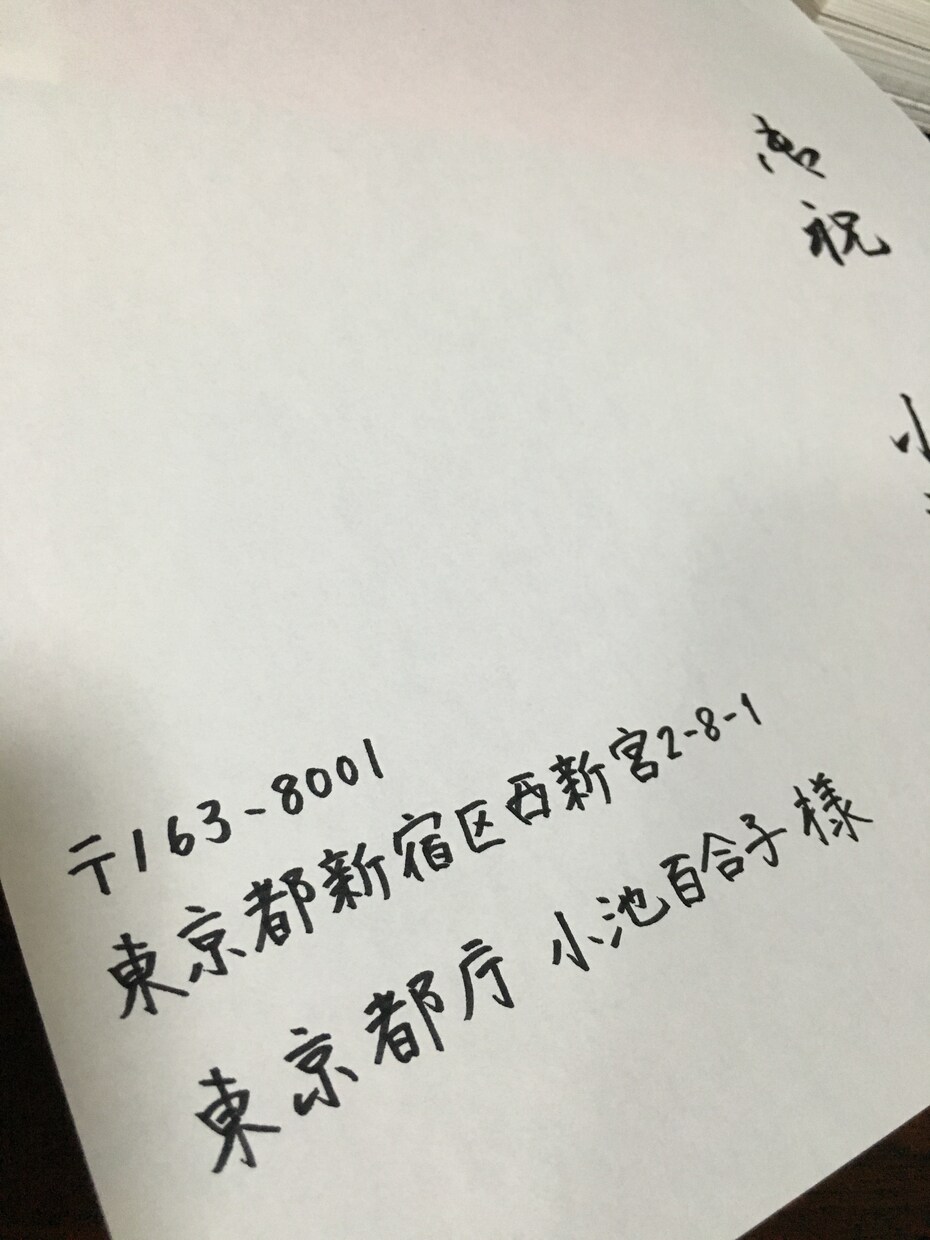 祝
〒163-8001
東京都新宿区西新宮2-8-1
東京都庁 小池百合子様